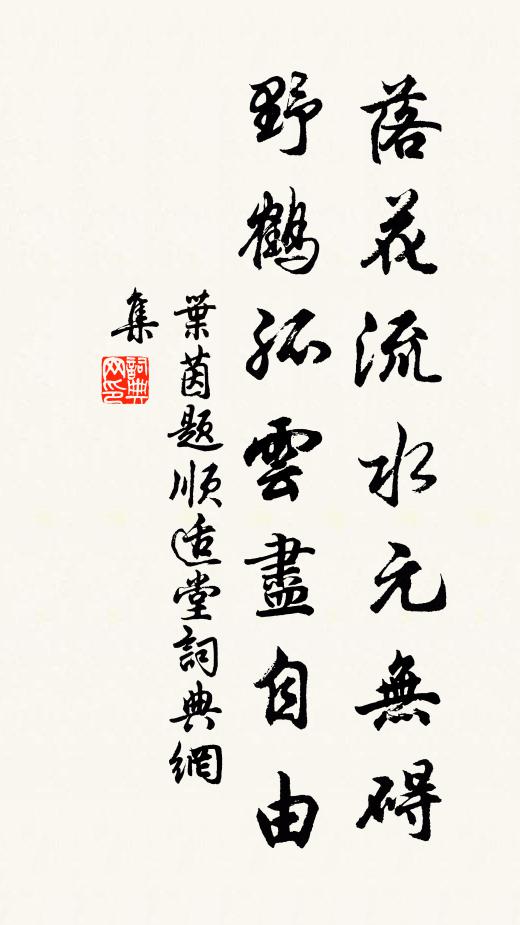 落花流水元無碍
野鶴孤雲盡自由
葉茵題順适堂詞典網
集
詞典
网印